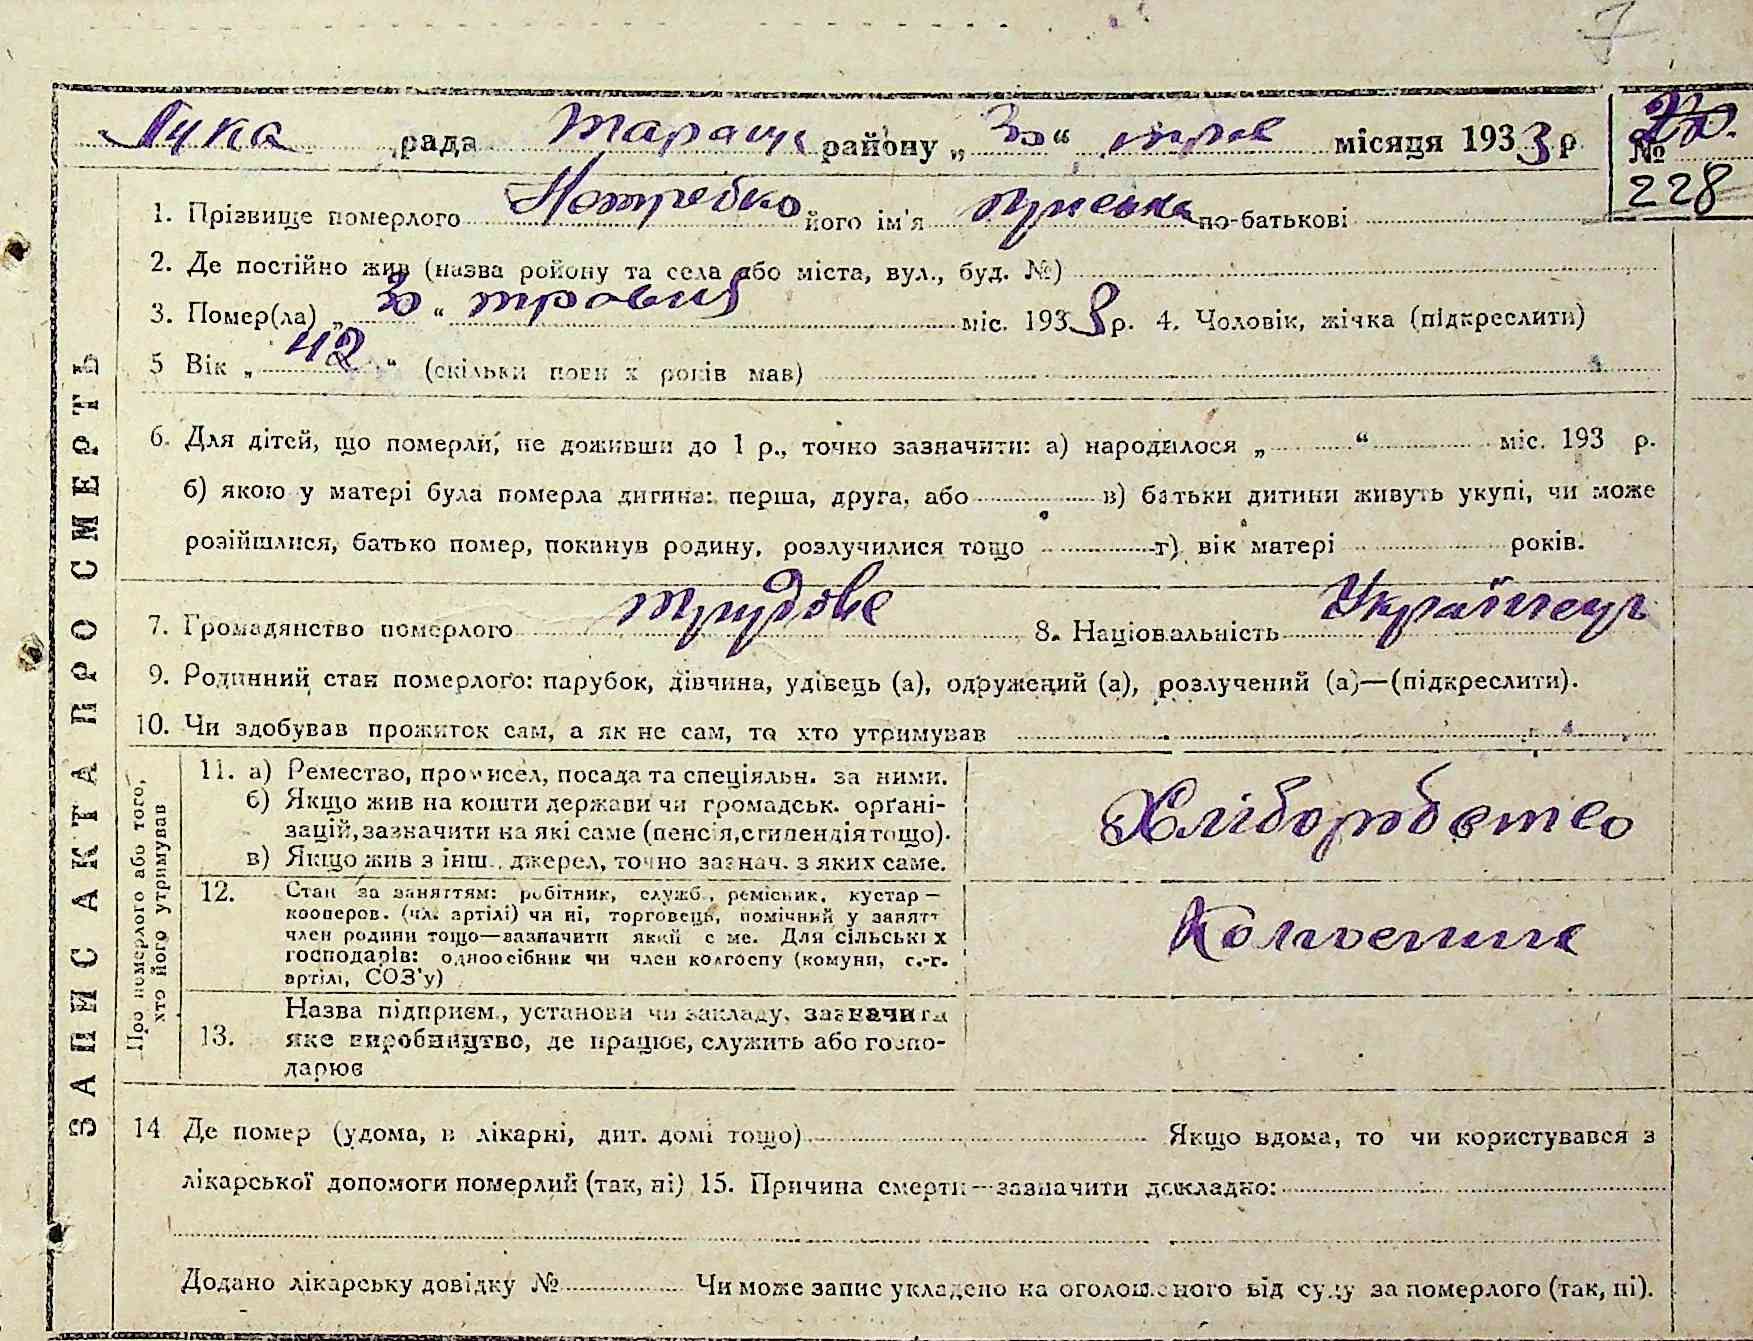 7
Лука рада Тараща району „ 30 “ трав місяця 1933 р. №
228
ЗАПИС АКТА ПРО СМЕРТЬ
1. Прізвище померлого Нетребко його ім'я Пріська по-батькові
2. Де постійно жив (назва ройону та села або міста, вул., буд. №)
3. Помер(ла) „ 30 “ травня міс. 1933 р. 4. Чоловік, жінка (підкреслити)
5 Вік „ 42 “ (скільки повних років мав)
6. Для дітей, що померли, не доживши до 1 р., точно зазначити: а) народилося „ “ міс. 193 р.
б) якою у матері була померла дитина: перша, друга, або в) батьки дитини живуть укупі, чи може
розійшлися, батько помер, покинув родину, розлучилися тощо г) вік матері років.
7. Громадянство померлого трудове 8. Національність Українець
9. Родинний стан померлого: парубок, дівчина, удівець (а), одружений (а), розлучений (а)—(підкреслити).
10. Чи здобував прожиток сам, а як не сам, то хто утримував
Про померлого або того, хто його утримував
11. а) Ремество, промисел, посада та спеціяльн. за ними.
б) Якщо жив на кошти держави чи громадськ. орґані-
зацій, зазначити на які саме (пенсія, стипендія тощо).
в) Якщо жив з інш. джерел, точно зазнач. з яких саме.
Хліборобство
12. Стан за заняттям: робітник, служб., ремісник, кустар—
кооперов. (чл. артілі) чи ні, торговець, помічний у занятт
член родини тощо—зазначити який саме. Для сільських
господарів: одноосібник чи член колгоспу (комуни, с.-г.
артілі, СОЗ'у)
Колгоспник
13. Назва підприєм., установи чи закладу, зазначити
яке виробництво, де працює, служить або госпо-
дарює
14 Де помер (удома, в лікарні, дит. домі тощо) Якщо вдома, то чи користувався з
лікарської допомоги померлий (так, ні) 15. Причина смерти—зазначити докладно:
Додано лікарську довідку № Чи може запис укладено на оголошеного від суду за померлого (так, ні).